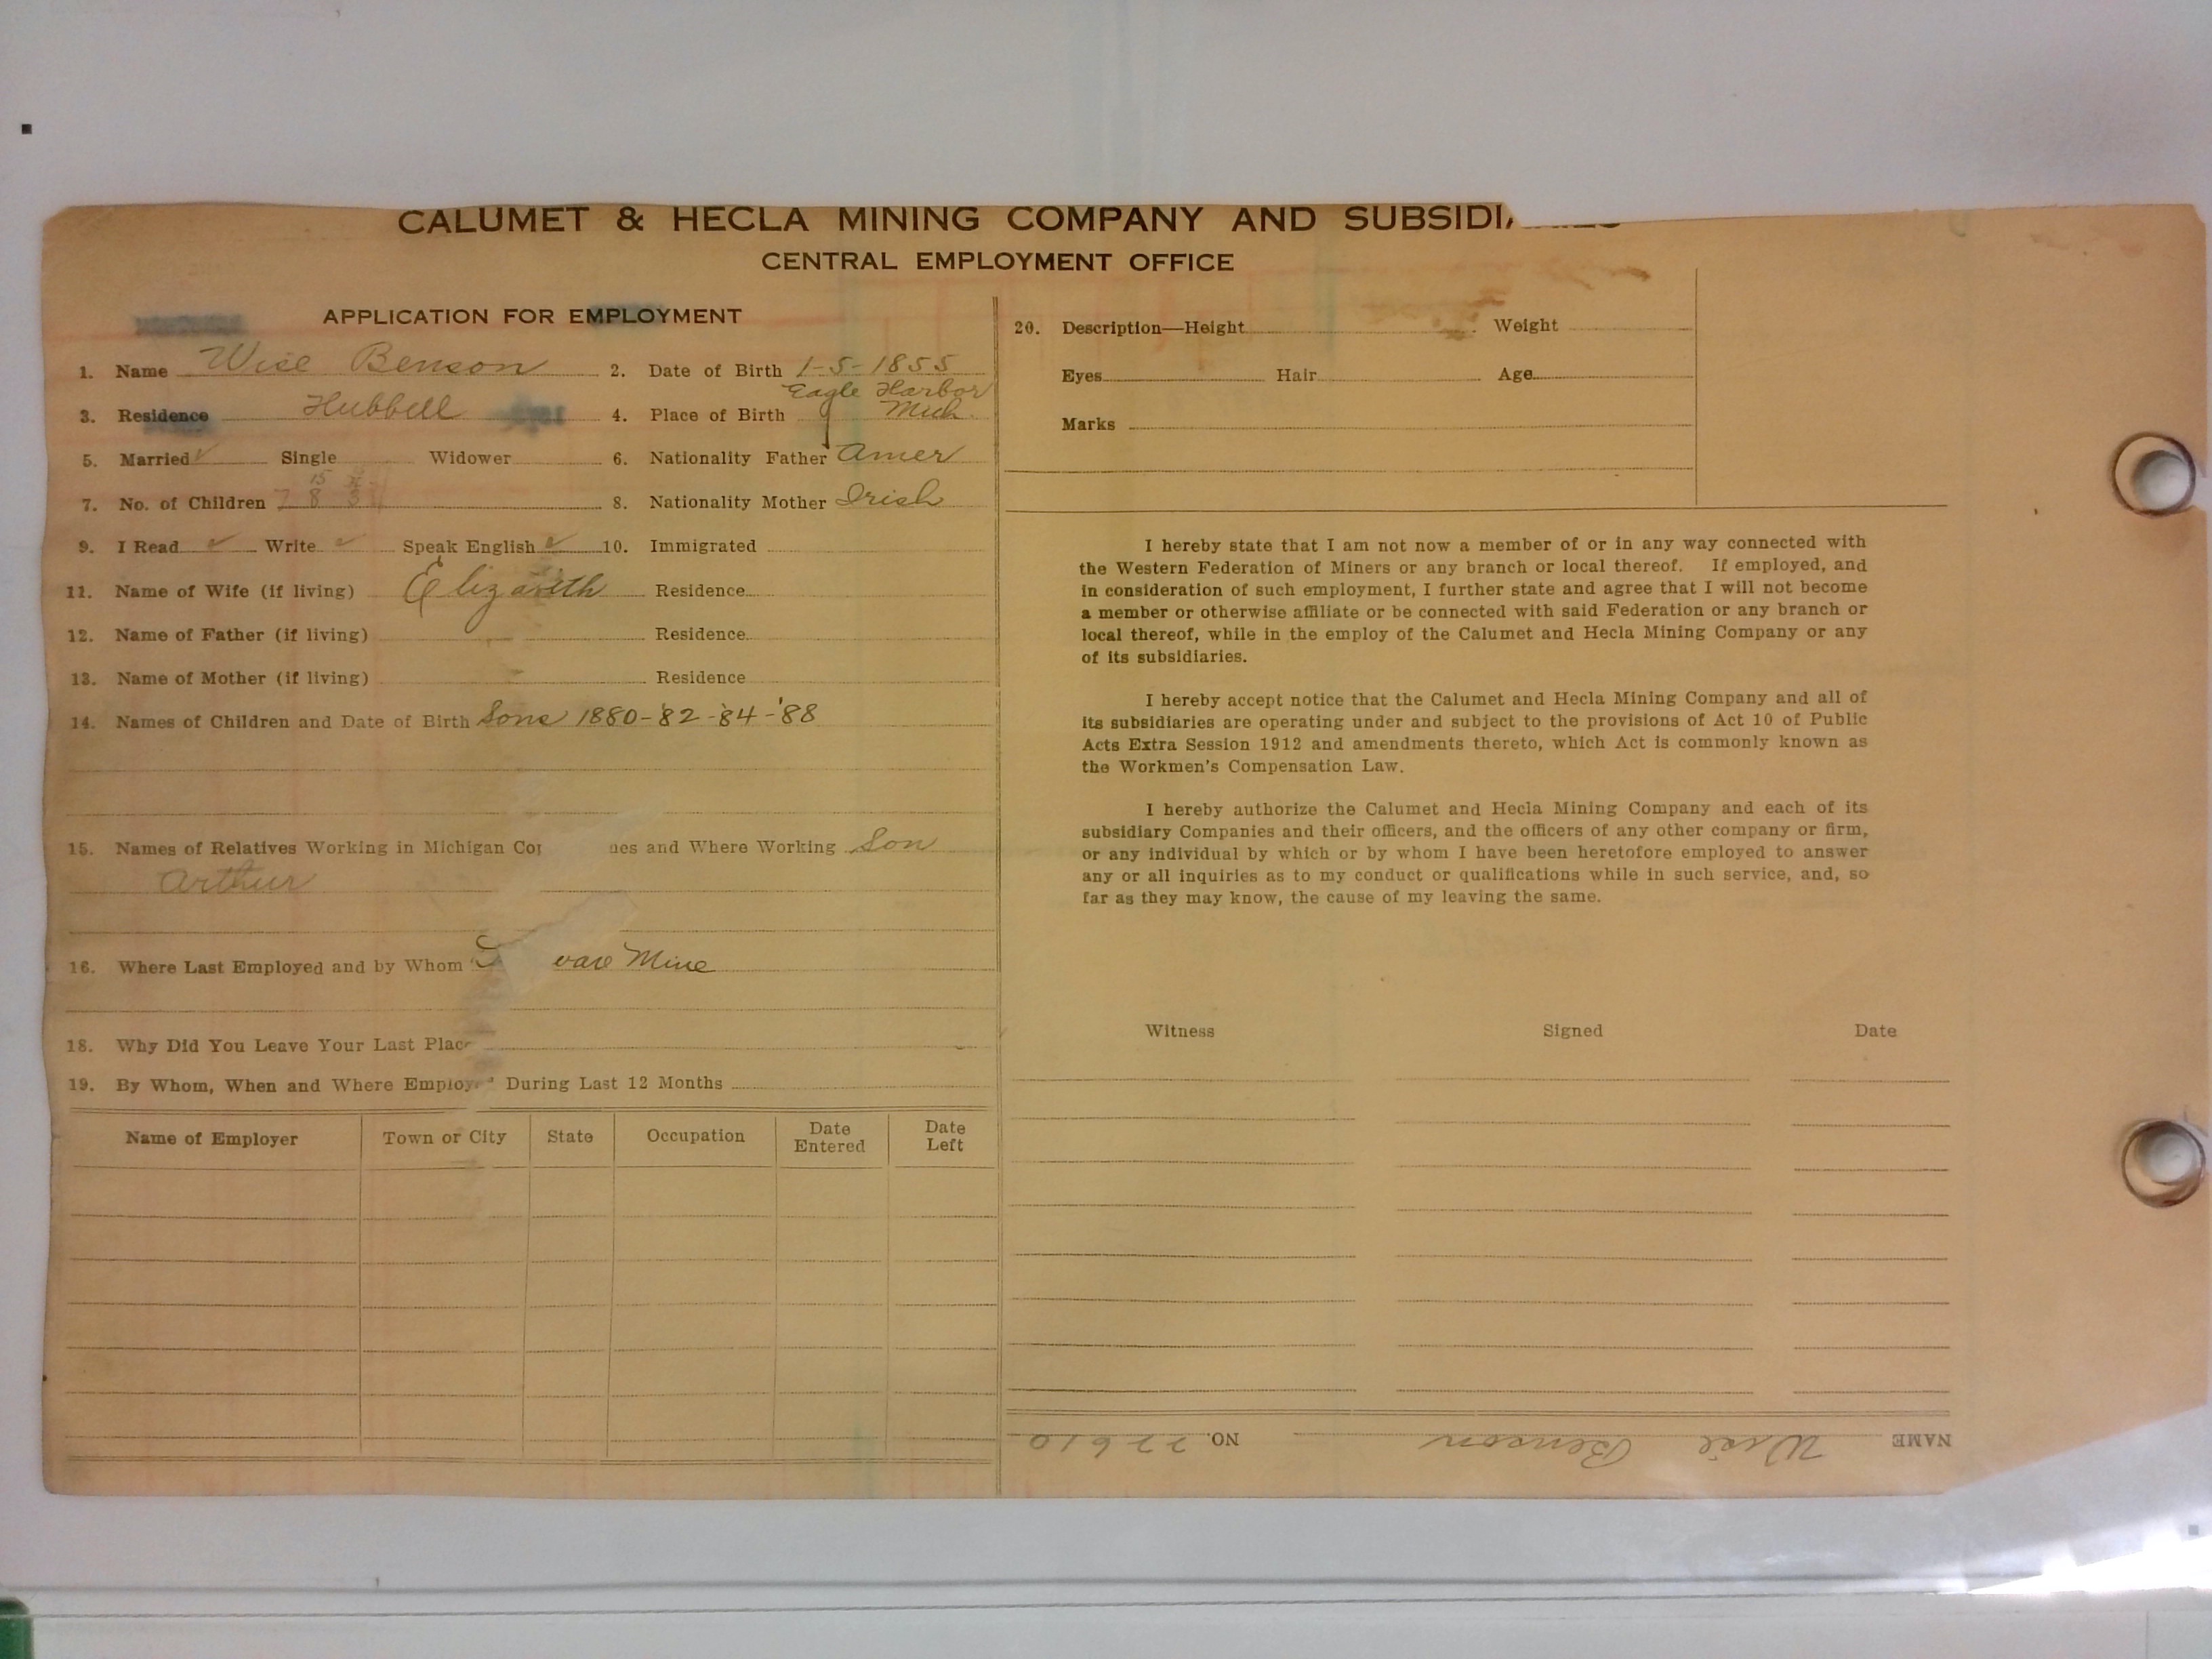 CALUMET & HECLA MINING COMPANY AND SUBSIDI
CENTRAL EMPLOYMENT OFFICE
APPLICATION FOR EMPLOYMENT
1. Name Wise Benson 2. Date of Birth 1-5-1855
3. Residence Hubbell 4. Place of Birth Eagle Harbor Mich.
5. Married ✓ Single Widower 6. Nationality Father Amer
7. No. of Children 8. Nationality Mother Irish
9. I Read ✓ Write ✓ Speak English ✓ 10. Immigrated
11. Name of Wife (if living) Residence
12. Name of Father (if living) Residence
13. Name of Mother (if living) Residence
14. Names of Children and Date of Birth Sons 1880-'82-'84-'88
15. Names of Relatives Working in Michigan and Where Working Son
Arthur
16. Where Last Employed and by Whom Mine
18. Why Did You Leave Your Last Plac
19. By Whom, When and Where Employ During Last 12 Months
Name of Employer Town or City State Occupation Date Entered Date Left
20. Description—Height Weight
Eyes Hair Age
Marks
I hereby state that I am not now a member of or in any way connected with
the Western Federation of Miners or any branch or local thereof. If employed, and
in consideration of such employment, I further state and agree that I will not become
a member or otherwise affiliate or be connected with said Federation or any branch or
local thereof, while in the employ of the Calumet and Hecla Mining Company or any
of its subsidiaries.
I hereby accept notice that the Calumet and Hecla Mining Company and all of
its subsidiaries are operating under and subject to the provisions of Act 10 of Public
Acts Extra Session 1912 and amendments thereto, which Act is commonly known as
the Workmen's Compensation Law.
I hereby authorize the Calumet and Hecla Mining Company and each of its
subsidiary Companies and their officers, and the officers of any other company or firm,
or any individual by which or by whom I have been heretofore employed to answer
any or all inquiries as to my conduct or qualifications while in such service, and, so
far as they may know, the cause of my leaving the same.
Witness Signed Date
NAME Wise Benson NO. 22610